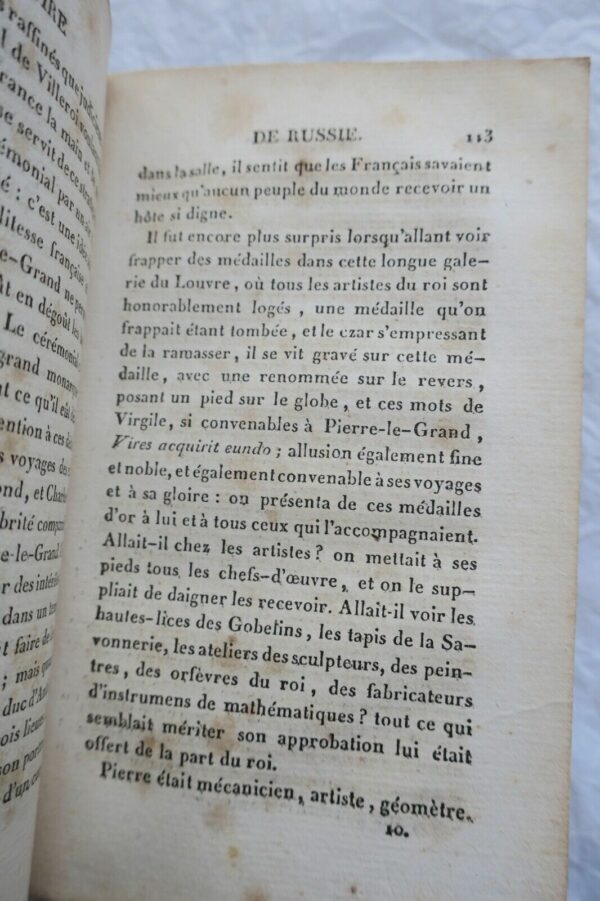 IRE
raffinés que
de Villeroi
rance la main et
se servit de ce
émonial par un
é : c'est une
litesse française
-le-Grand ne
ût en dégoût les
Le cérémonial
grand monarque
nt ce qu'il
ention à ces
s voyages des
ond, et Charles
brité
e-le-Grand
r des
dans un
t faire de
; mais
duc d'An
ois lieues
son
d'un
DE RUSSIE. 113
dans la salle, il sentit que les Français savaient
mieux qu'aucun peuple du monde recevoir un
hôte si digne.
Il fut encore plus surpris lorsqu'allant voir
frapper des médailles dans cette longue gale-
rie du Louvre, où tous les artistes du roi sont
honorablement logés, une médaille qu'on
frappait étant tombée, et le czar s'empressant
de la ramasser, il se vit gravé sur cette mé-
daille, avec une renommée sur le revers,
posant un pied sur le globe, et ces mots de
Virgile, si convenables à Pierre-le-Grand,
Vires acquirit eundo; allusion également fine
et noble, et également convenable à ses voyages
et à sa gloire : on présenta de ces médailles
d'or à lui et à tous ceux qui l'accompagnaient.
Allait-il chez les artistes? on mettait à ses
pieds tous les chefs-d'œuvre, et on le sup-
pliait de daigner les recevoir. Allait-il voir les
hautes-lices des Gobelins, les tapis de la Sa-
vonnerie, les ateliers des sculpteurs, des pein-
tres, des orfèvres du roi, des fabricateurs
d'instrumens de mathématiques? tout ce qui
semblait mériter son approbation lui était
offert de la part du roi.
Pierre était mécanicien, artiste, géomètre.
10.